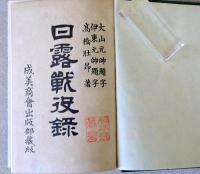 大山元帥題字
伊東元帥題字
高橋壯昂著
日露戰役錄
成美商會出版部藏版